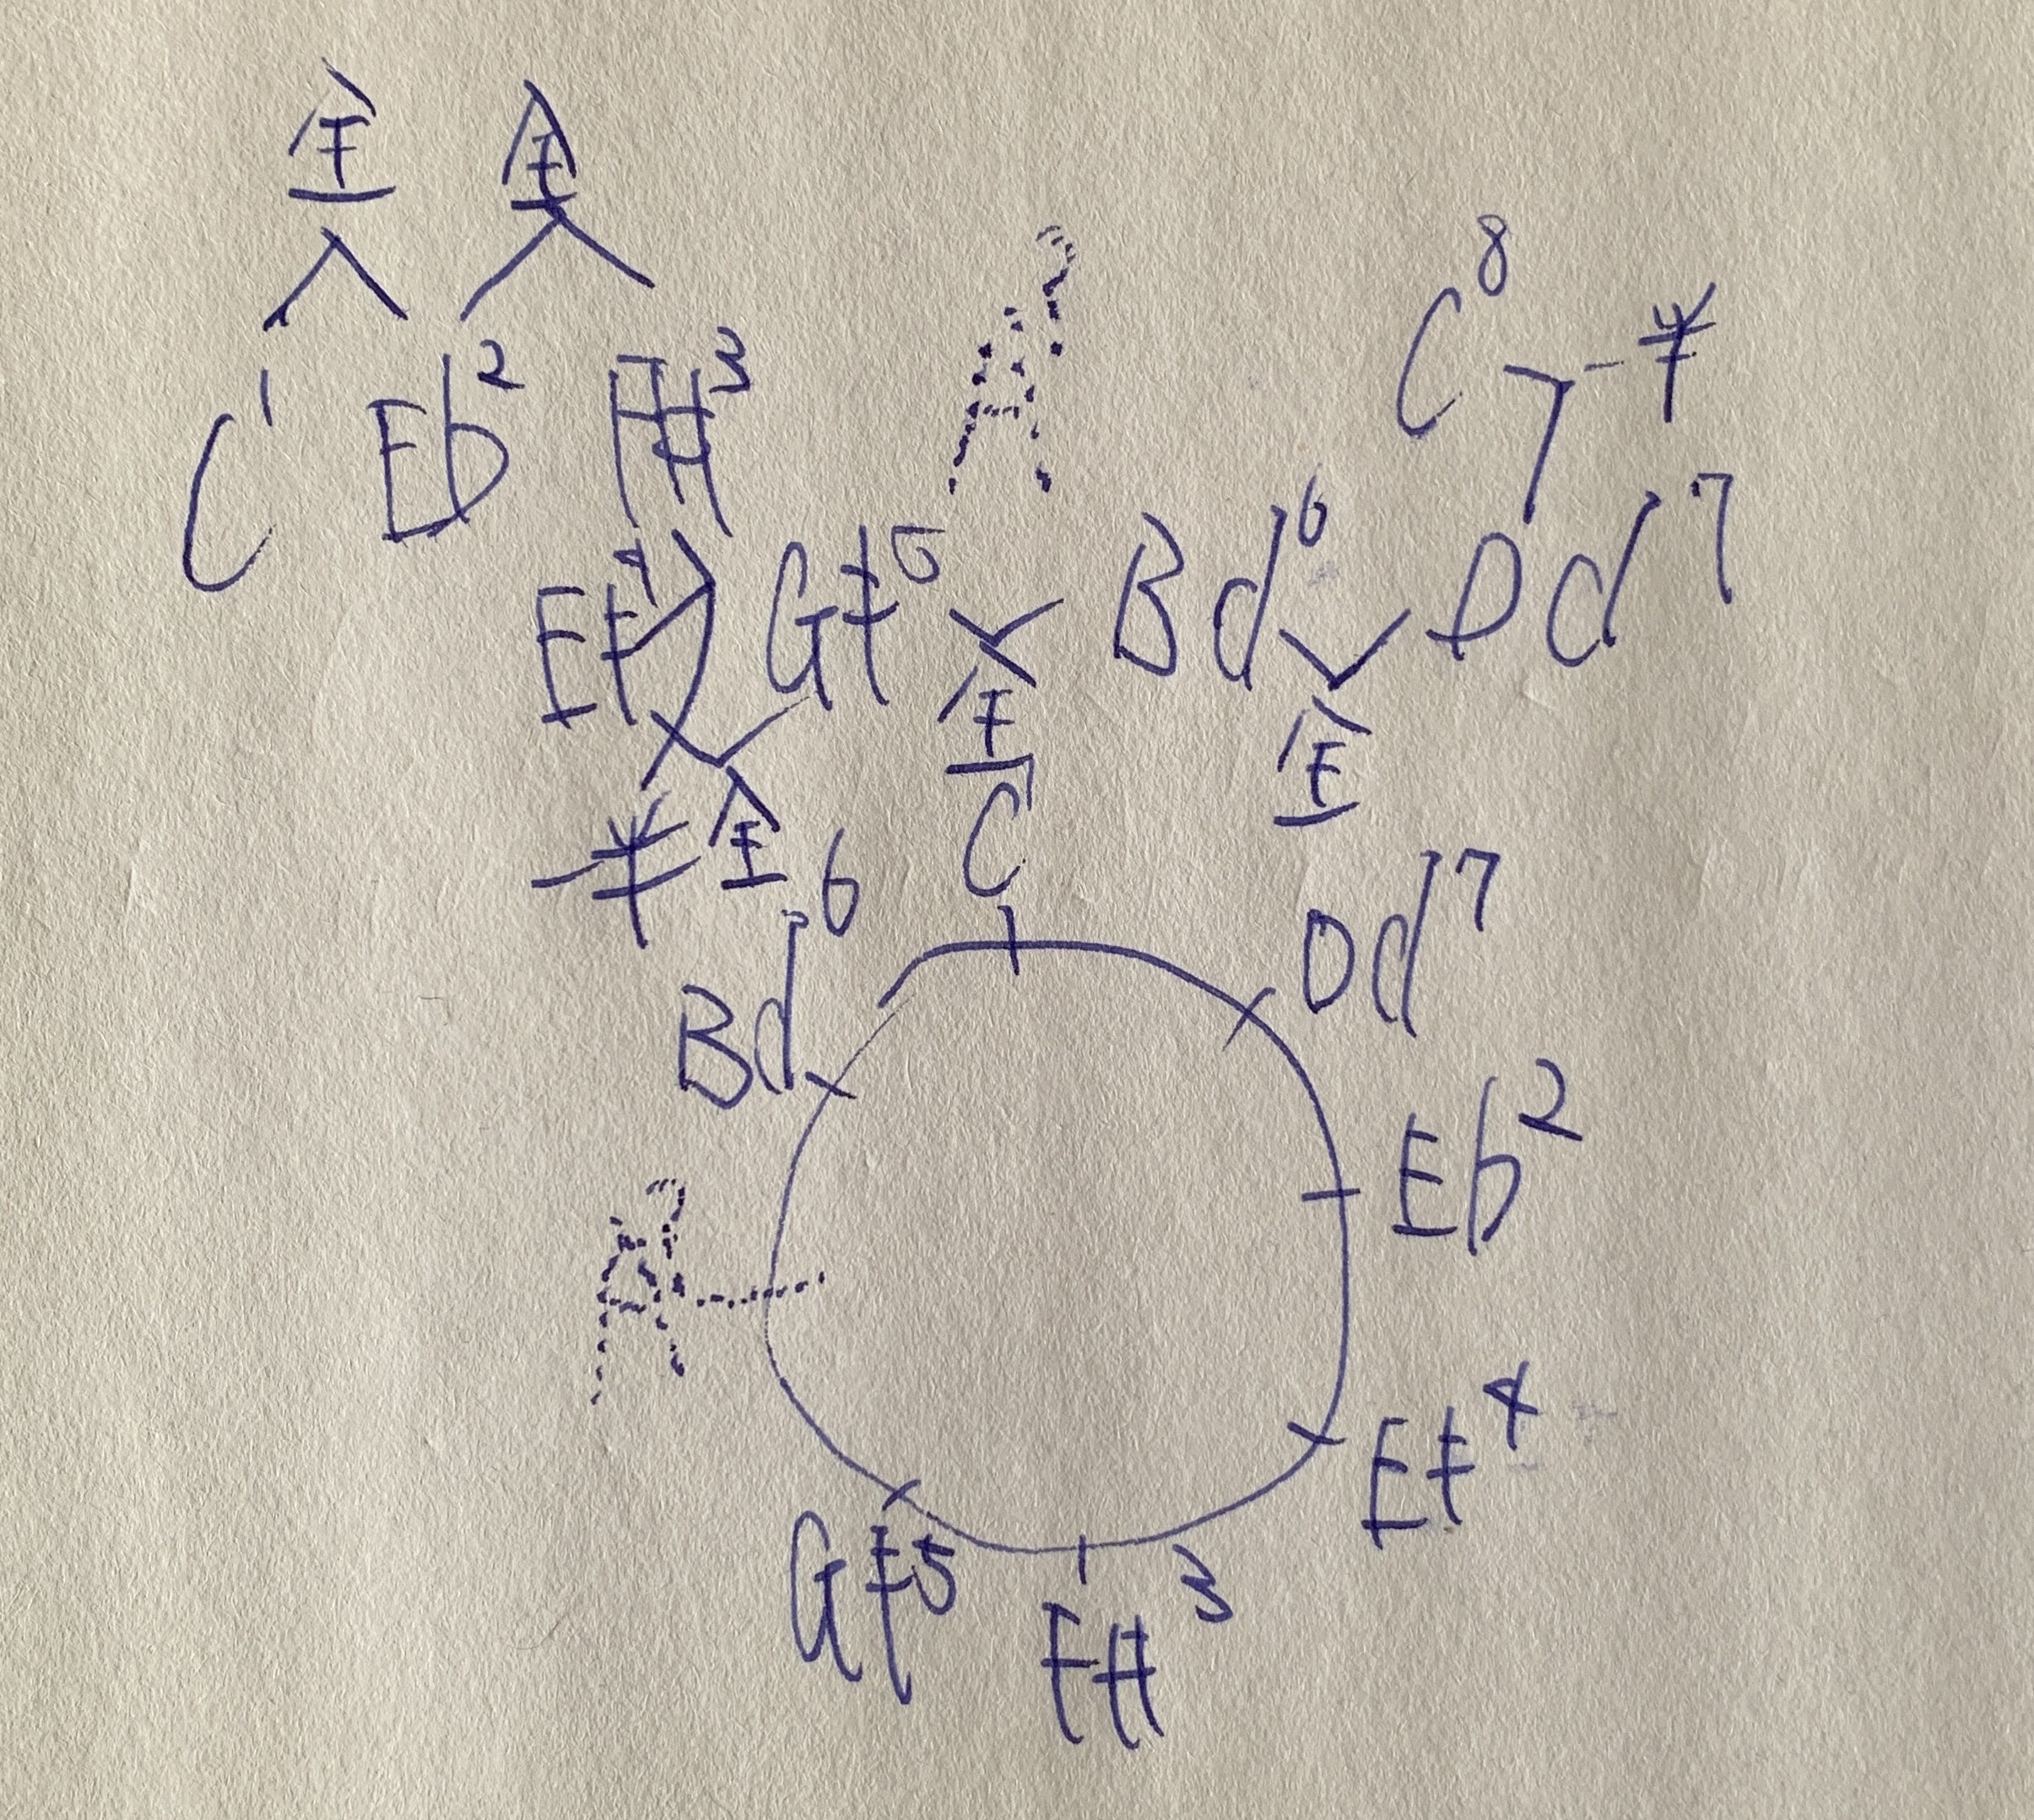 全 全
C1 Eb2 F#3
A?
C8 半
E‡4 G‡5 Bd6 Dd7
半 全 全 全
C
Bd6 Dd7
Eb2
A?
E‡4
G‡5 F#3